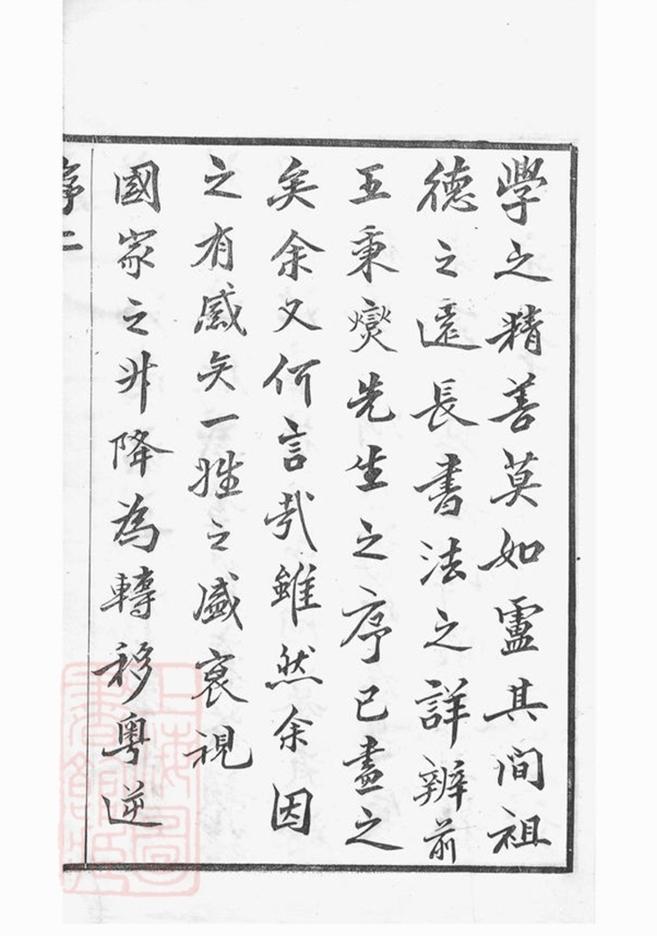 學之精善莫如盧其間祖
德之遠長書法之詳辨前
王秉燮先生之序已盡之
矣余又何言哉雖然余因
之有感矣一姓之盛衰視
國家之升降為轉移粵逆
序 二